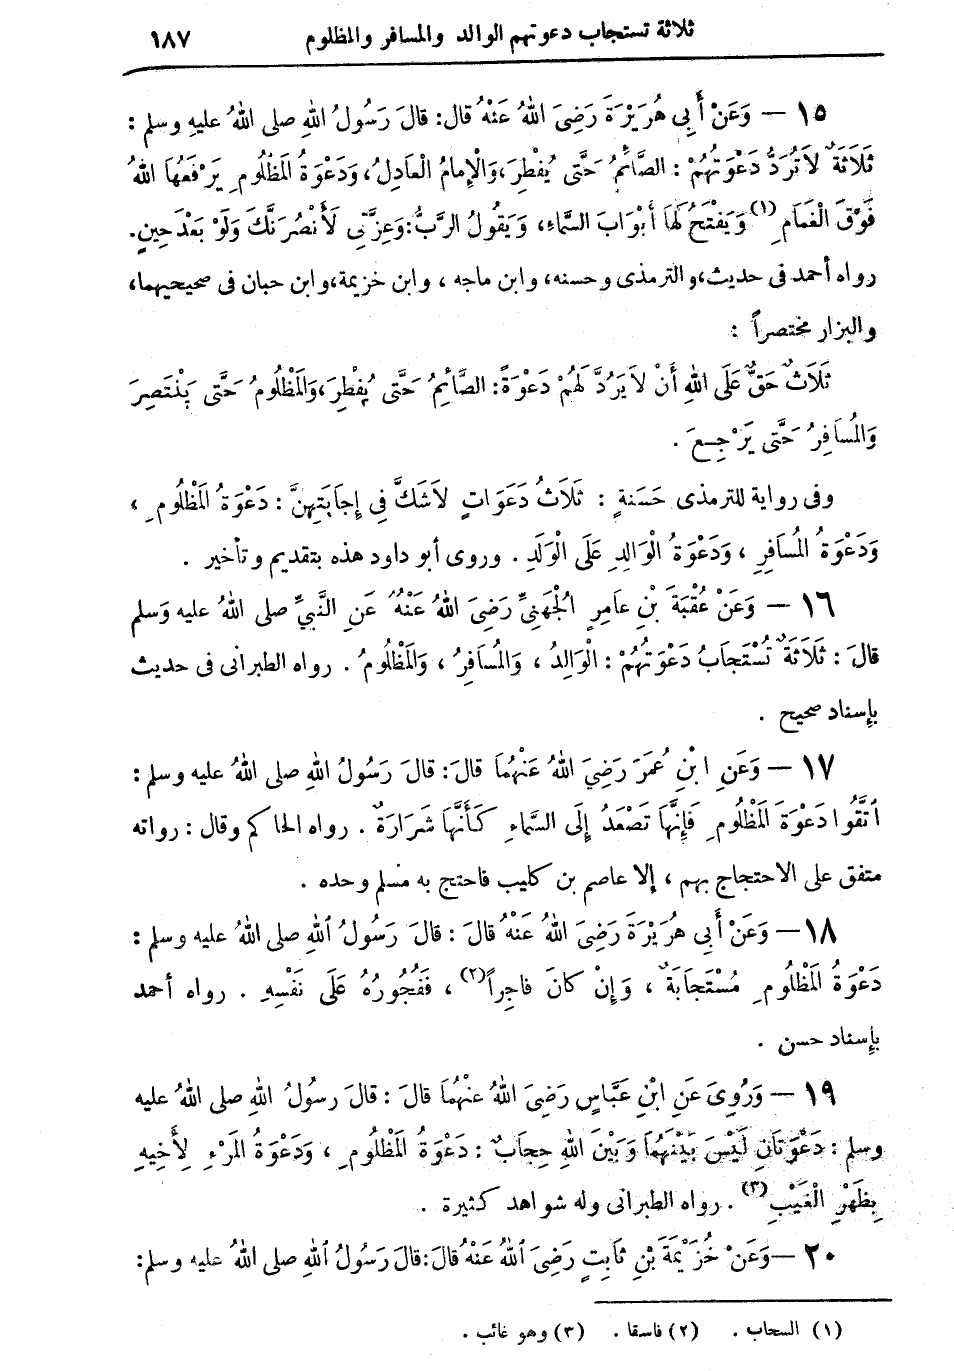 ثلاثة تستجاب دعوتهم الوالد والمسافر والمظلوم ١٨٧
١٥ — وَعَنْ أَبِى هُرَيْرَةَ رَضِىَ اللهُ عَنْهُ قال: قالَ رَسُولُ اللهِ صلى اللهُ عليهِ وسلم :
ثَلَاثَةٌ لاَ تُرَدُّ دَعْوَتُهُمْ : الصَّائمُ حَتَّى يُفْطِرَ، وَالْإِمامُ الْعادِلُ، وَدَعْوَةُ المَظْلُومِ يَرْفَعُهَا اللهُ
فَوْقَ الْغَمَامِ (١) وَيَفْتَحُ لَهَا أَبْوَابَ السَّمَاءِ، وَيَقُولُ الرَّبُّ: وَعِزَّتِى لَأَنْصُرَنَّكَ وَلَوْ بَعْدَ حِينٍ.
رواه أحمد فى حديث، والترمذى وحسنه، وابن ماجه ، وابن خزيمة، وابن حبان فى صحيحيهما،
والبزار مختصراً :
ثَلَاثٌ حَقٌّ عَلَى اللهِ أَنْ لاَ يَرُدَّ لَهُمْ دَعْوَةً: الصَّائِمُ حَتَّى يُفْطِرَ، وَالمَظْلُومُ حَتَّى يَنْتَصِرَ
وَالْمُسَافِرُ حَتَّى يَرْجِعَ .
وفى رواية للترمذى حَسَنةٍ : ثَلَاثُ دَعَوَاتٍ لاَ شَكَّ فِى إِجَابَتِهِنَّ : دَعْوَةُ المَظْلُومِ ،
وَدَعْوَةُ المُسَافِرِ ، وَدَعْوَةُ الْوَالِدِ عَلَى الْوَلَدِ . وروى أبو داود هذه بتقديم وتأخير .
١٦ — وَعَنْ عُقْبَةَ بْنِ عامِرٍ الْجُهَنِىِّ رَضِىَ اللهُ عَنْهُ عَنِ النَّبِىِّ صلى اللهُ عليه وَسلم
قالَ : ثَلَاثَةٌ تُسْتَجَابُ دَعْوَتُهُمْ : الْوَالِدُ ، وَالمُسَافِرُ ، وَالمَظْلُومُ . رواه الطبرانى فى حديث
بإسناد صحيح .
١٧ — وَعَنِ ابْنِ عُمَرَ رَضِيَ اللهُ عَنْهُمَا قالَ: قالَ رَسُولُ اللهِ صلى اللهُ عليه وسلم :
اتَّقُوا دَعْوَةَ المَظْلُومِ فَإِنَّهَا تَصْعَدُ إِلَى السَّمَاءِ كَأَنَّهَا شَرَارَةٌ . رواه الحاكم وقال : رواته
متفق على الاحتجاج بهم ، إلا عاصم بن كليب فاحتج به مسلم وحده .
١٨ — وَعَنْ أَبِى هُرَيْرَةَ رَضِىَ اللهُ عَنْهُ قالَ : قالَ رَسُولُ اللهِ صلى اللهُ عليه وسلم :
دَعْوَةُ المَظْلُومِ مُسْتَجَابَةٌ ، وَإِنْ كانَ فاجِراً (٢) ، فَفُجُورُهُ عَلَى نَفْسِهِ . رواه أحمد
بإسناد حسن .
١٩ — وَرُوِىَ عَنِ ابْنِ عَبَّاسٍ رَضِىَ اللهُ عنْهُمَا قالَ : قالَ رسُولُ اللهِ صلى اللهُ عليه
وسلم : دَعْوَتَانِ لَيْسَ بَيْنَهُمَا وَبَيْنَ اللهِ حِجَابٌ : دَعْوَةُ المَظْلُومِ ، وَدَعْوَةُ المَرْءِ لِأَخِيهِ
بِظَهْرِ الْغَيْبِ (٣) . رواه الطبرانى وله شواهد كثيرة .
٢٠ — وَعَنْ خُزَيْمَةَ بْنِ ثَابِتٍ رَضِىَ اللهُ عَنْهُ قالَ: قالَ رَسُولُ اللهِ صلى اللهُ عليه وسلم:
(١) السحاب . (٢) فاسقا . (٣) وهو غائب .